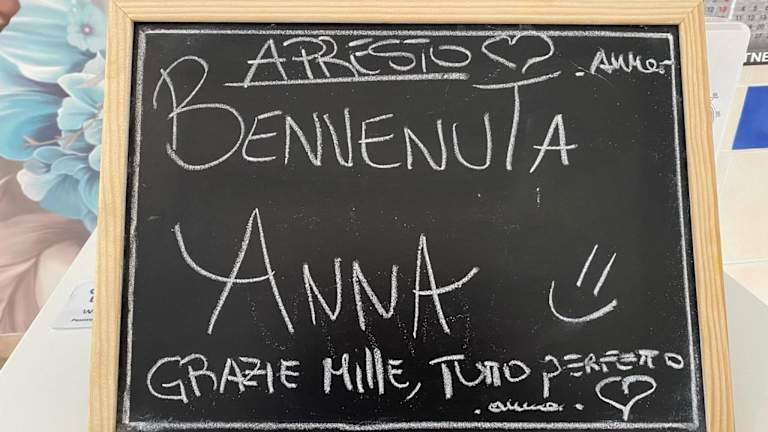 A PRESTO
. anna -
BENVENUTA
ANNA
GRAZIE MILLE, TUTTO PERFETTO
. anna .